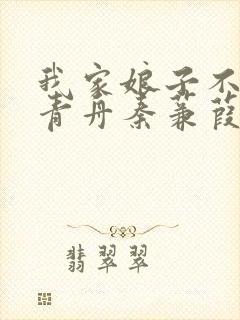 我家娘子不
青丹秦蒹葭
翡翠翠